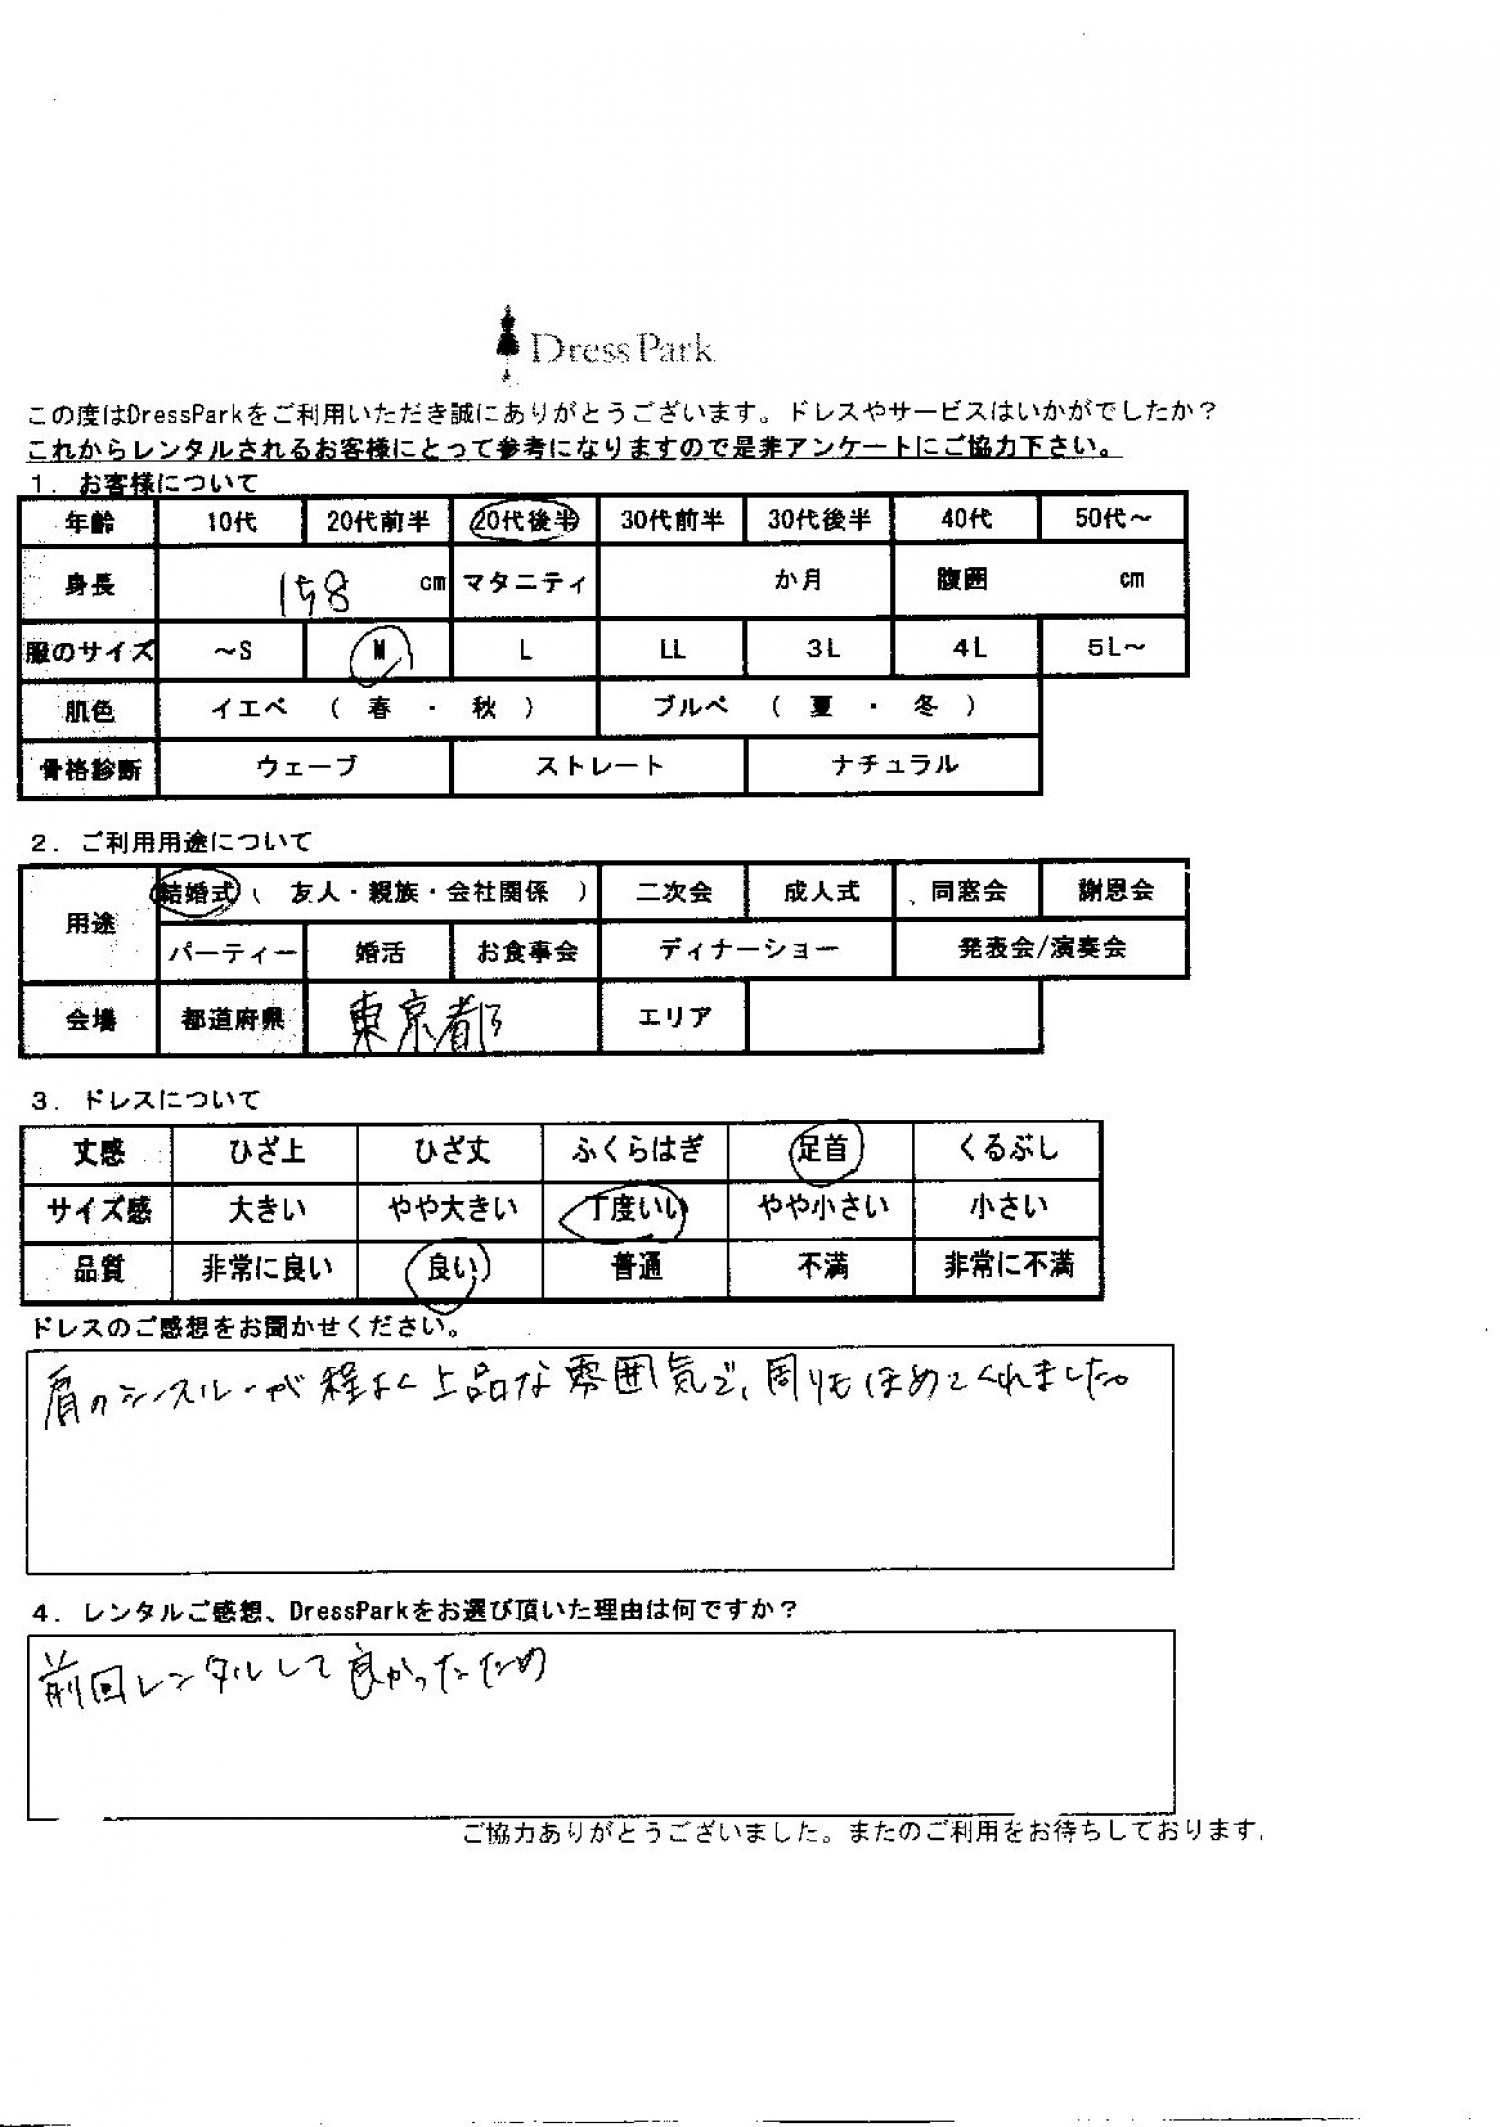 Dress Park
この度はDressParkをご利用いただき誠にありがとうございます。ドレスやサービスはいかがでしたか？
これからレンタルされるお客様にとって参考になりますので是非アンケートにご協力下さい。
1. お客様について
年齢 10代 20代前半 20代後半 30代前半 30代後半 40代 50代～
身長 158 cm マタニティ か月 腹囲 cm
服のサイズ ～S M L LL 3L 4L 5L～
肌色 イエベ （ 春 ・ 秋 ） ブルベ （ 夏 ・ 冬 ）
骨格診断 ウェーブ ストレート ナチュラル
2. ご利用用途について
用途 結婚式（ 友人・親族・会社関係 ） 二次会 成人式 同窓会 謝恩会
パーティー 婚活 お食事会 ディナーショー 発表会/演奏会
会場 都道府県 東京都 エリア
3. ドレスについて
丈感 ひざ上 ひざ丈 ふくらはぎ 足首 くるぶし
サイズ感 大きい やや大きい 丁度いい やや小さい 小さい
品質 非常に良い 良い 普通 不満 非常に不満
ドレスのご感想をお聞かせください。
肩のシースルーが程よく上品な雰囲気で、周りもほめてくれました。
4. レンタルご感想、DressParkをお選び頂いた理由は何ですか？
前回レンタルして良かったため
ご協力ありがとうございました。またのご利用をお待ちしております。